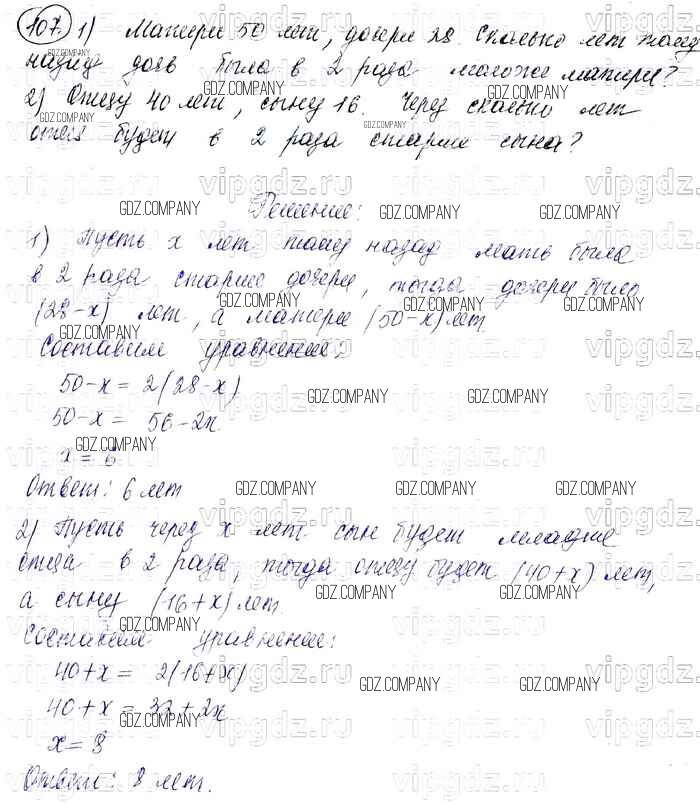 107. 1) Матери 50 лет, дочери 28. Сколько лет тому
назад дочь была в 2 раза моложе матери?
2) Отцу 40 лет, сыну 16. Через сколько лет
отец будет в 2 раза старше сына?
Решение:
1) Пусть x лет тому назад мать была
в 2 раза старше дочери, тогда дочери было
(28-x) лет, а матери (50-x) лет
Составим уравнение:
50-x = 2(28-x)
50-x = 56-2x
x = 6
Ответ: 6 лет
2) Пусть через x лет сын будет младше
отца в 2 раза, тогда отцу будет (40+x) лет,
а сыну (16+x) лет.
Составим уравнение:
40+x = 2(16+x)
40+x = 32+2x
x = 8
Ответ: 8 лет.